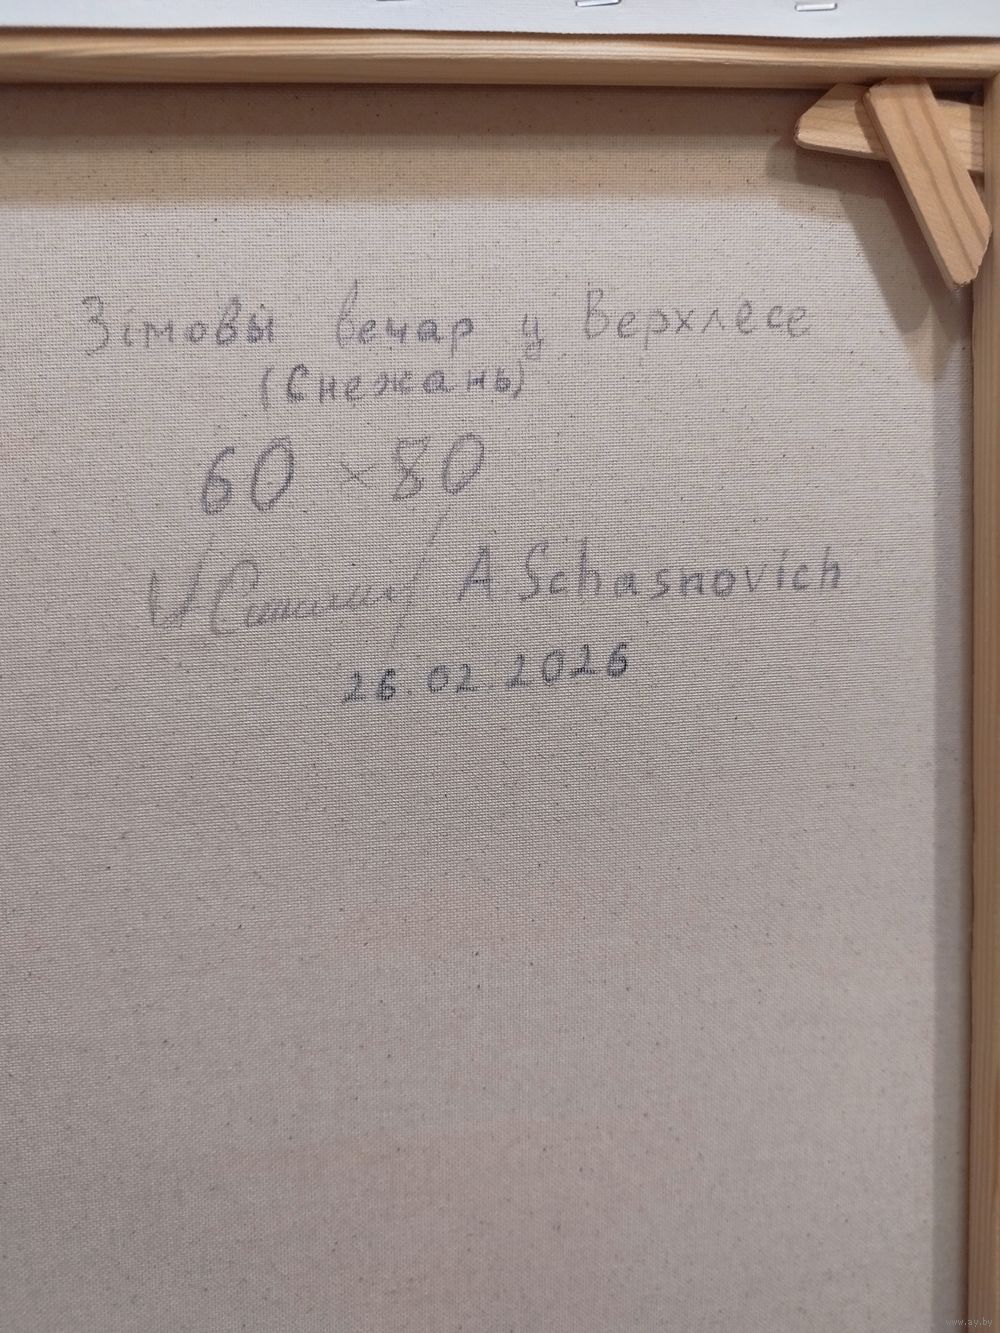 Зімовы вечар у Верхлесе
(Снежань)
60 × 80
A. Schasnovich
26.02.2026
www.ay.by